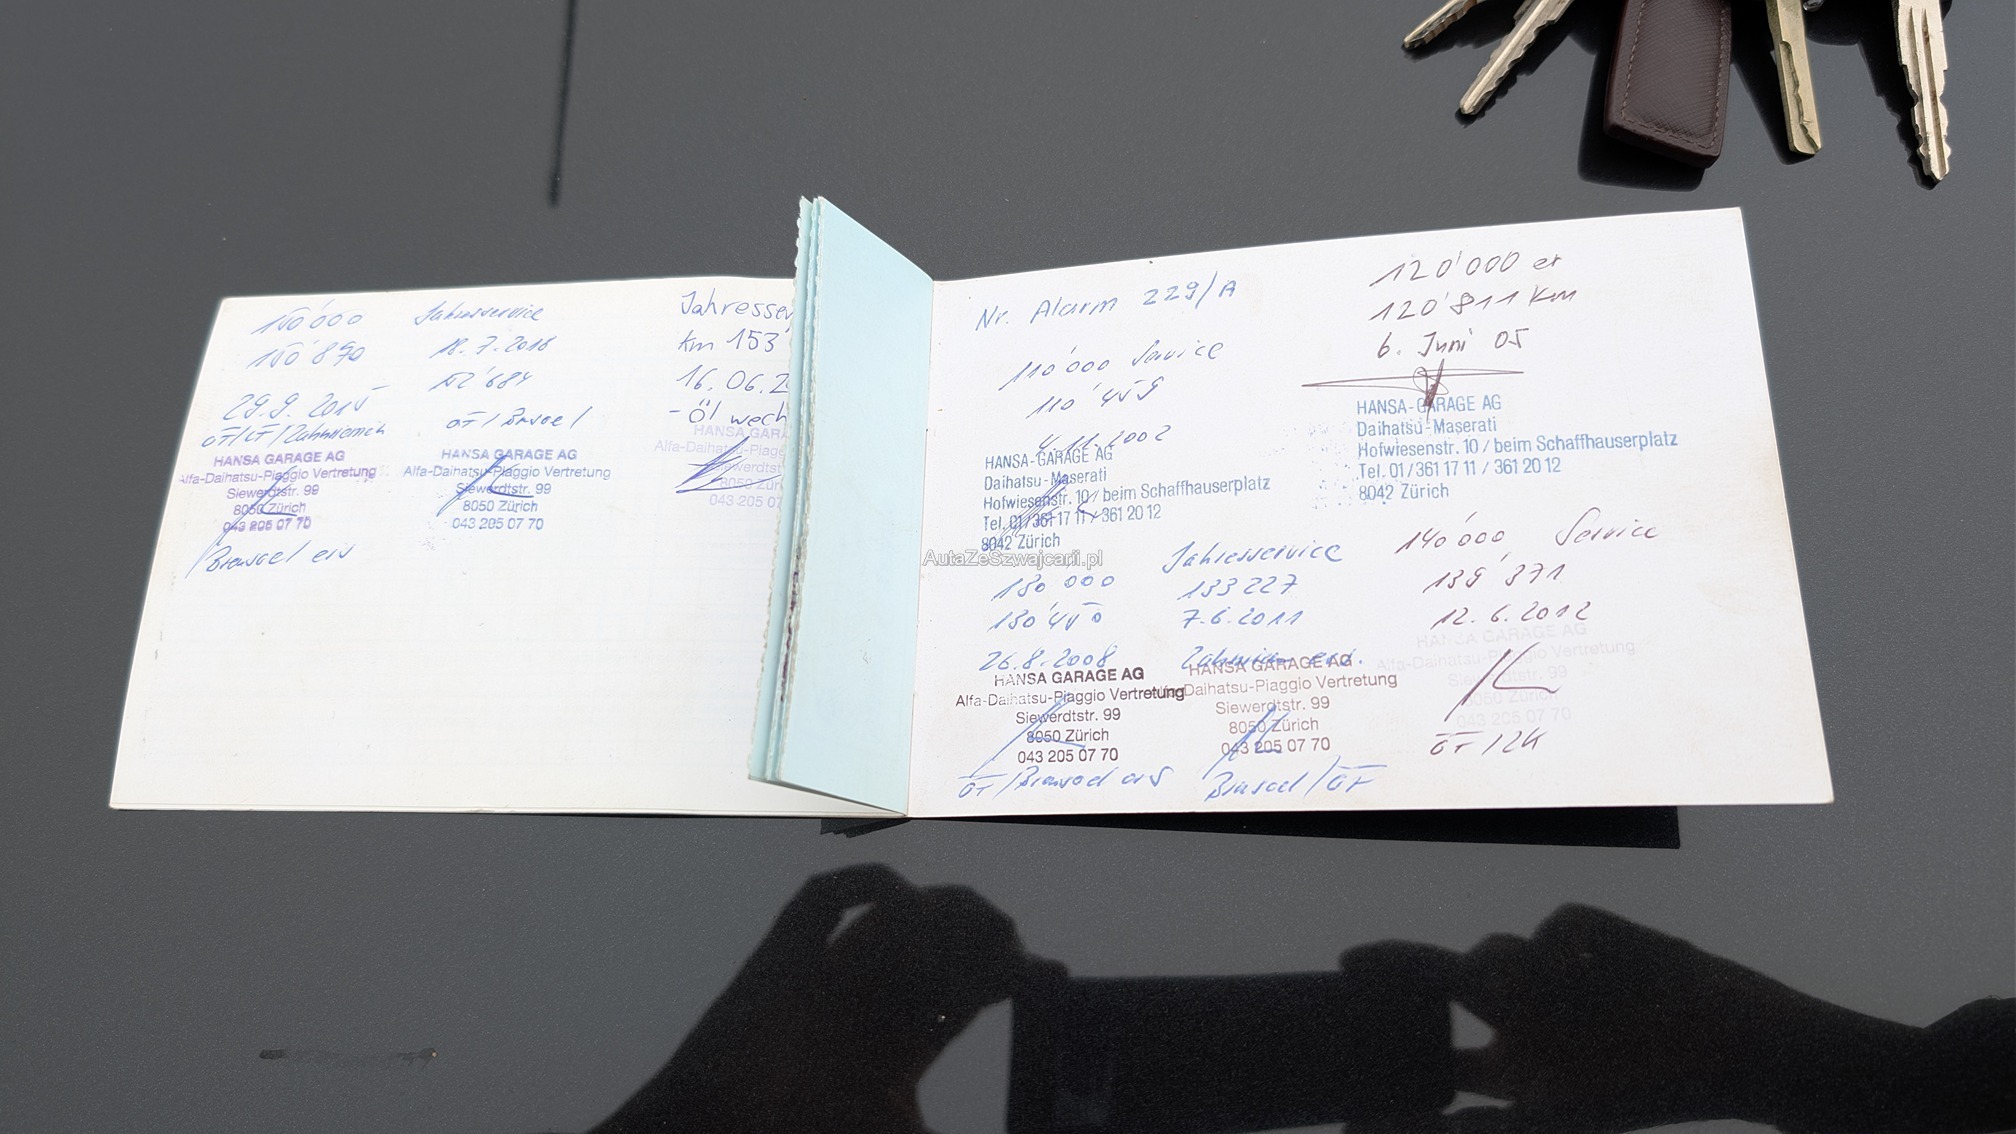 150'000
150'870
29.9.2015
ÖF/LF/Zahnriemen
HANSA GARAGE AG
Alfa-Daihatsu-Piaggio Vertretung
Siewerdtstr. 99
8050 Zürich
043 205 07 70
Jahresservice
18.7.2016
152'684
HANSA GARAGE AG
Alfa-Daihatsu-Piaggio Vertretung
Siewerdtstr. 99
8050 Zürich
043 205 07 70
Jahresser
km 153'
16.06.2
- Öl wech
HANSA GARA
Alfa-Daihatsu-Piagg
Siewerdtst
8050 Züri
043 205 07
Nr. Alarm 229/A
110'000 Service
110'459
4.11.2002
HANSA-GARAGE AG
Daihatsu-Maserati
Hofwiesenstr. 10 / beim Schaffhauserplatz
Tel. 01/361 17 11 / 361 20 12
8042 Zürich
120'000 er
120'811 Km
6. Juni 05
HANSA-GARAGE AG
Daihatsu-Maserati
Hofwiesenstr. 10 / beim Schaffhauserplatz
Tel. 01/361 17 11 / 361 20 12
8042 Zürich
AutaZeSzwajcarii.pl
130'000
130'450
26.8.2008
HANSA GARAGE AG
Alfa-Daihatsu-Piaggio Vertretung
Siewerdtstr. 99
8050 Zürich
043 205 07 70
Jahresservice
133227
7.6.2011
HANSA GARAGE AG
Daihatsu-Piaggio Vertretung
Siewerdtstr. 99
8050 Zürich
043 205 07 70
140'000 Service
139'371
12.6.2012
HANSA GARAGE AG
Alfa-Daihatsu-Piaggio Vertretung
Siewerdtstr. 99
8050 Zürich
043 205 07 70
ÖF/ZK